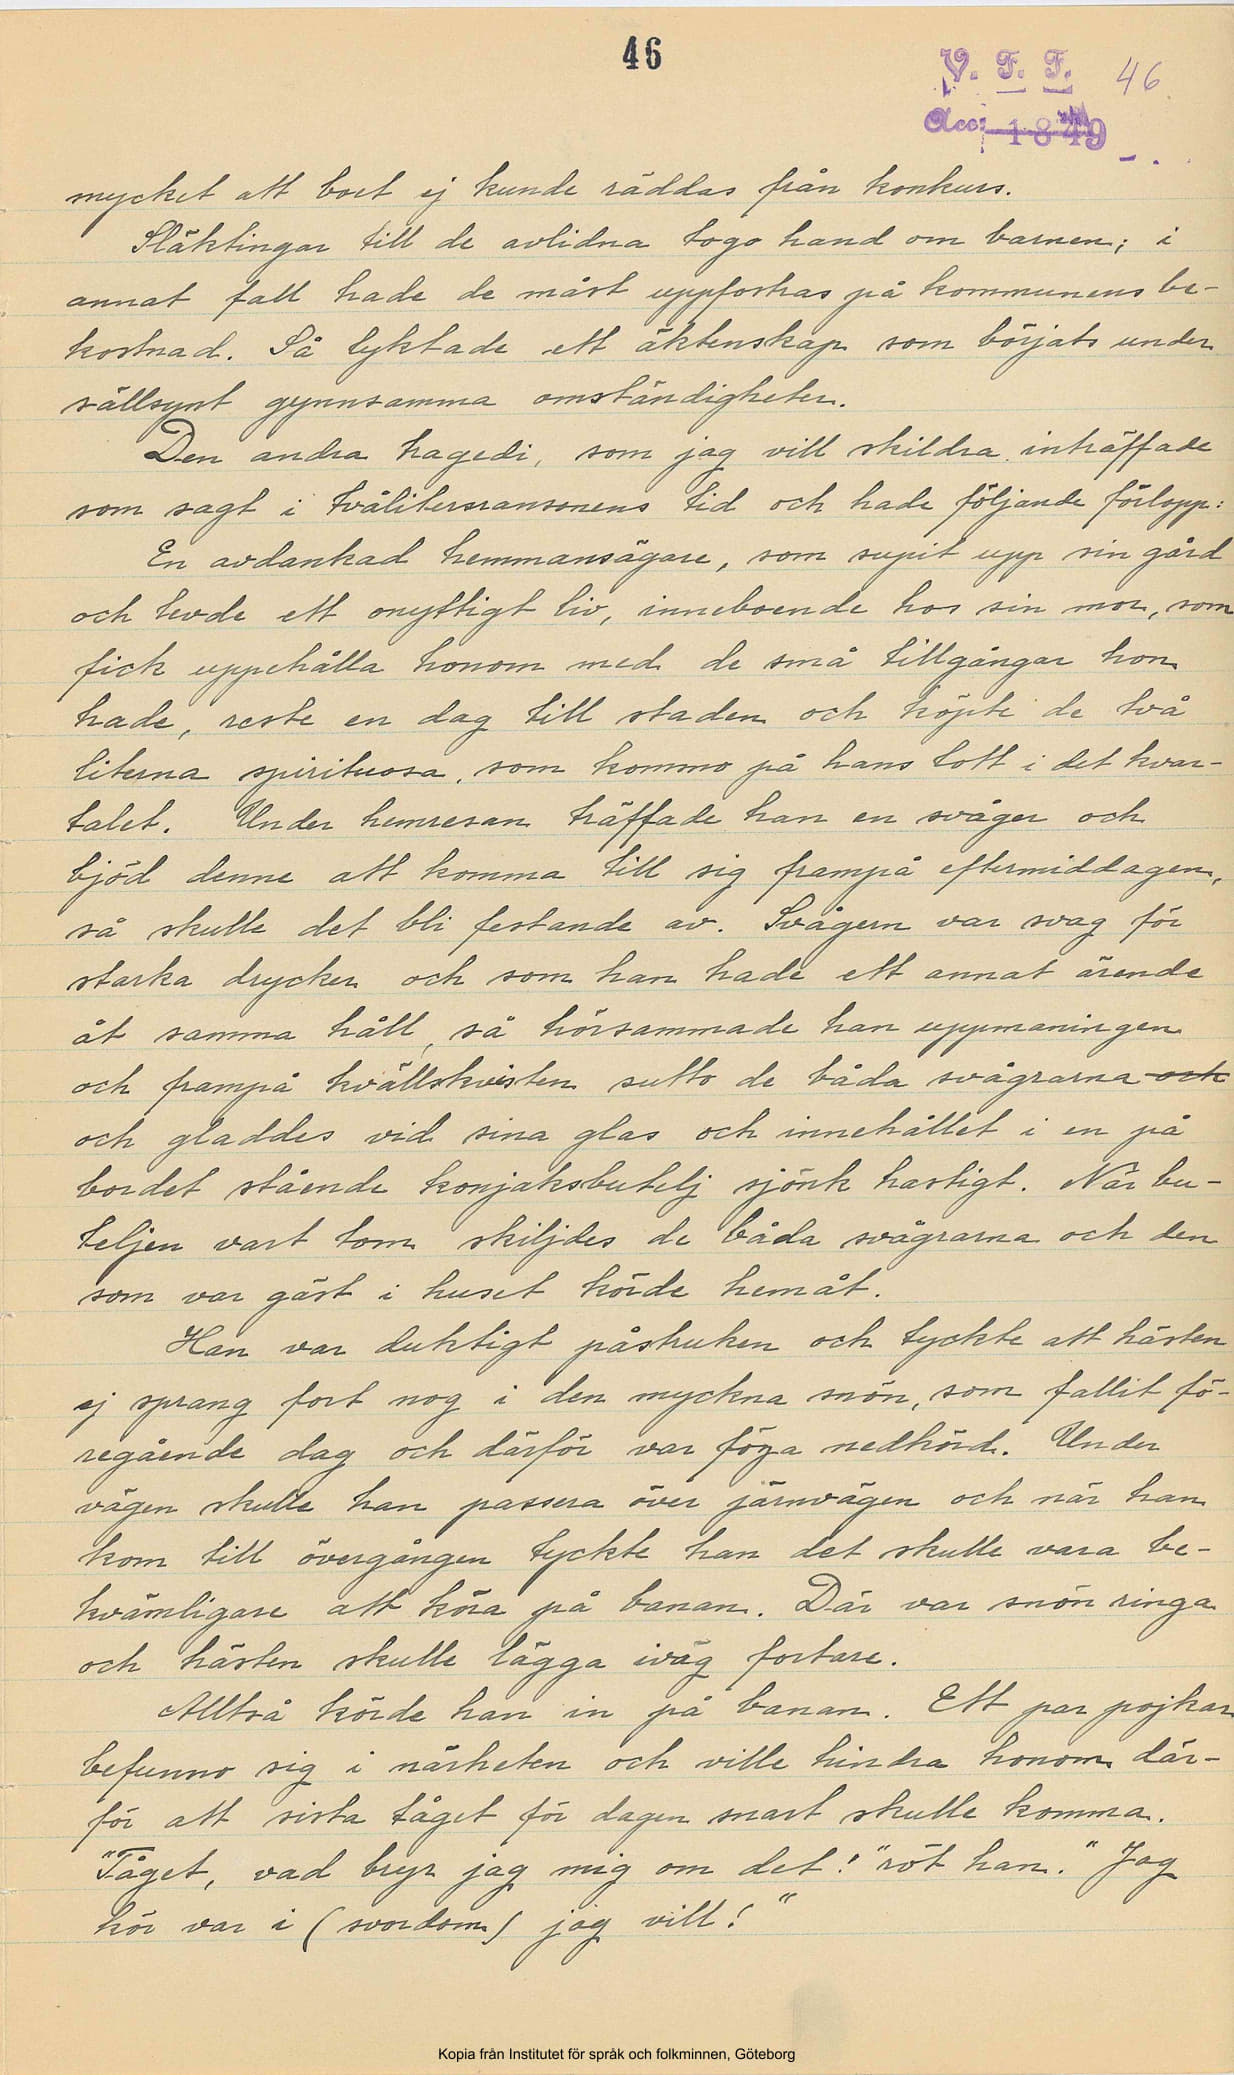 46
V. F. F. 46
Acc: 1849
mycket att boet ej kunde räddas från konkurs.
Släktingar till de avlidna togo hand om barnen; i
annat fall hade de måst uppfostras på kommunens be-
kostnad. Så lyktade ett äktenskap som börjats under
sällsynt gynnsamma omständigheter.
Den andra tragedi, som jag vill skildra inträffade
som sagt i tvålitersransonens tid och hade följande förlopp:
En avdankad hemmansägare, som supit upp sin gård
och levde ett onyttigt liv, inneboende hos sin mor, som
fick uppehålla honom med de små tillgångar hon
hade, reste en dag till staden och köpte de två
literna spirituosa, som kommo på hans lott i det kvar-
talet. Under hemresan träffade han en svåger och
bjöd denne att komma till sig frampå eftermiddagen,
så skulle det bli festande av. Svågern var svag för
starka drycker och som han hade ett annat ärende
åt samma håll, så hörsammade han uppmaningen
och frampå kvällskvisten sutto de båda svågrarna och
och gladdes vid sina glas och innehållet i en på
bordet stående konjaksbutelj sjönk hastigt. När bu-
teljen vart tom skiljdes de båda svågrarna och den
som var gäst i huset körde hemåt.
Han var duktigt påstruken och tyckte att hästen
ej sprang fort nog i den myckna snön, som fallit fö-
regående dag och därför var föga nedkörd. Under
vägen skulle han passera över järnvägen och när han
kom till övergången tyckte han det skulle vara be-
kvämligare att köra på banan. Där var snön ringa
och hästen skulle lägga iväg fortare.
Alltså körde han in på banan. Ett par pojkar
befunno sig i närheten och ville hindra honom där-
för att sista tåget för dagen snart skulle komma.
"Tåget, vad bryr jag mig om det!" röt han. "Jag
kör var i (svordom) jag vill!"
Kopia från Institutet för språk och folkminnen, Göteborg